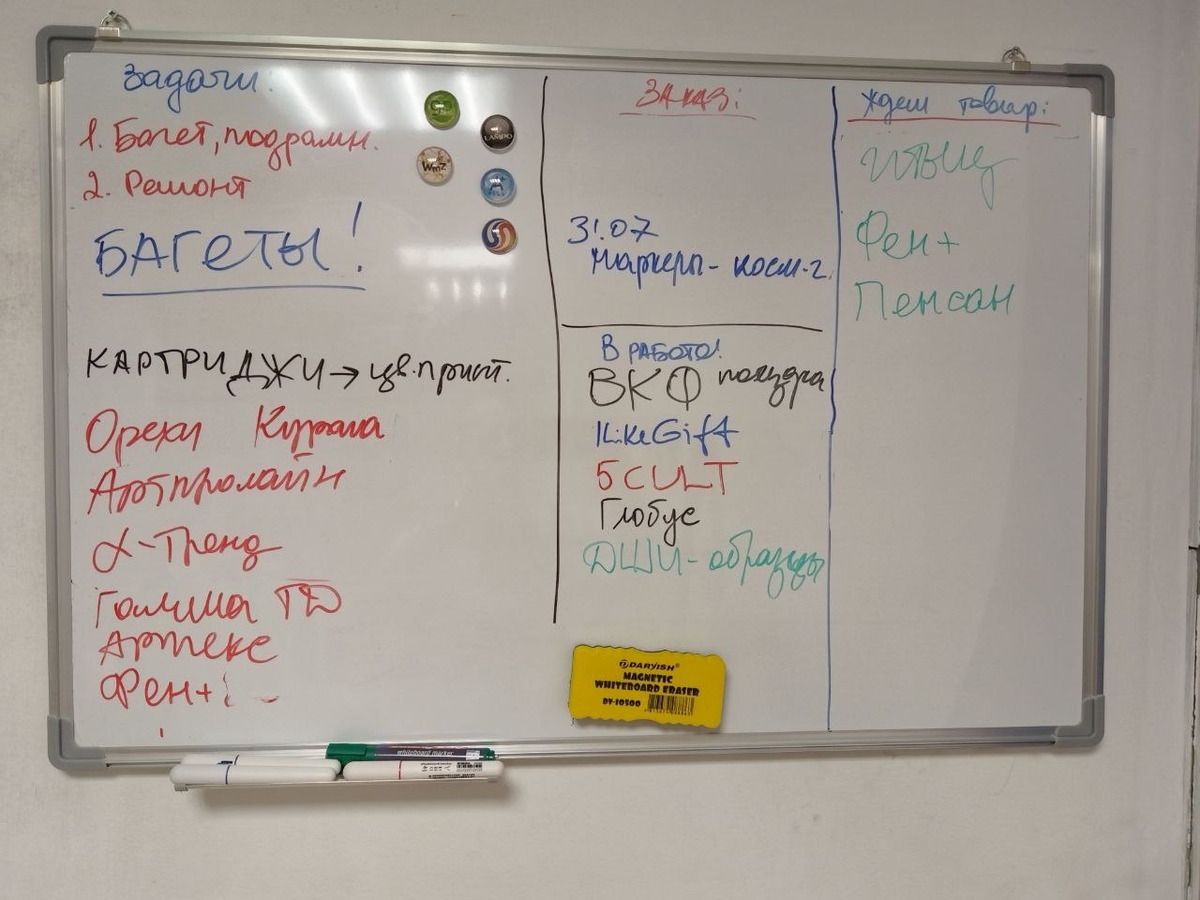 Задачи:
1. Багет, подрамн.
2. Ремонт
БАГЕТЫ!
КАРТРИДЖИ → цв. принт.
Орехи Курага
Артпролайн
α-Тренд
Галина ТД
Артекс
Фен+
LAMPO
WmZ
Заказ:
31.07
Маркеры - косм-2
В РАБОТЕ!
ВКФ пахидра
ILikeGift
5 CULT
Глобус
ДШИ - образцы
Ждем товар:
Фен+
Пенсан
DARYISH®
MAGNETIC
WHITEBOARD ERASER
DY-10500
whiteboard marker